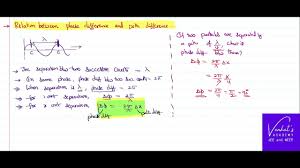 Relation between phase difference and path difference
λ
→ The separation b/w two successive crests = λ
→ In same phase, phase diff b/w two crests = 2π
→ When separation is λ, phase diff = 2π
→ for 1 unit separation, Δφ = 2π/λ
→ for x unit separation, Δφ = 2π/λ Δx
phase diff path diff
If two particles are separated
by a path of λ/4. What is
phase diff b/w them?
Δφ = 2π/λ x
= 2π/λ · λ/4
Vedantu's
ACADEMY
JEE and NEET